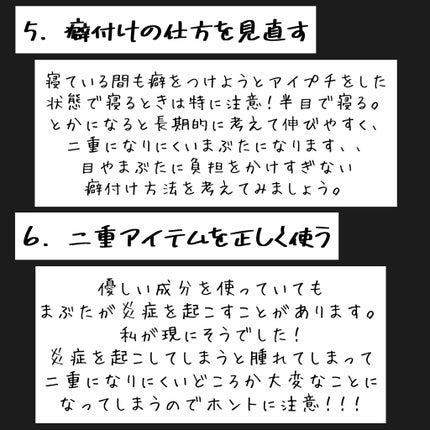 5. 癖付けの仕方を見直す
寝ている間も癖をつけようとアイプチをした
状態で寝るときは特に注意!半目で寝る。
とかになると長期的に考えて伸びやすく、
二重になりにくいまぶたになります、、
目やまぶたに負担をかけすぎない
癖付け方法を考えてみましょう。
6. 二重アイテムを正しく使う
優しい成分を使っていても
まぶたが炎症を起こすことがあります。
私が現にそうでした!
炎症を起こしてしまうと腫れてしまって
二重になりにくいどころか大変なことに
なってしまうのでホントに注意!!!